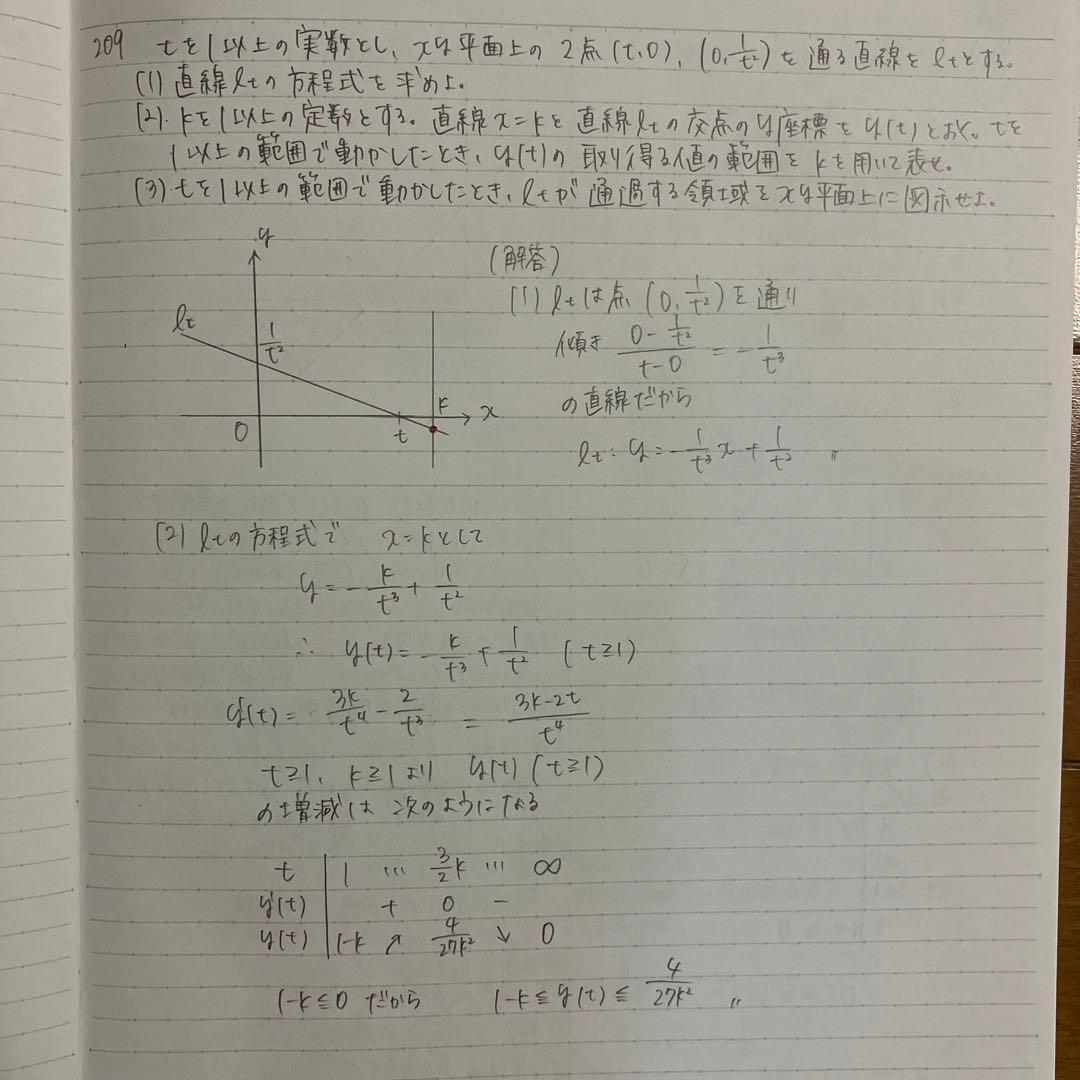 209 tを1以上の実数とし、xy平面上の2点(t,0), (0, 1/t²)を通る直線をltとする。
(1) 直線ltの方程式を求めよ。
(2). kを1以上の定数とする。直線x=kと直線ltの交点のy座標をy(t)とおく。tを
1以上の範囲で動かしたとき、y(t)の取り得る値の範囲をkを用いて表せ。
(3) tを1以上の範囲で動かしたとき、ltが通過する領域をxy平面上に図示せよ。
y
(解答)
(1) ltは点(0, 1/t²)を通り
lt
1/t²
傾き (0 - 1/t²)/(t-0) = -1/t³
k
x
の直線だから
0
t
lt: y = -1/t³ x + 1/t² 〃
(2) ltの方程式で x=kとして
y = -k/t³ + 1/t²
∴ y(t) = -k/t³ + 1/t² (t≧1)
y'(t) = 3k/t⁴ - 2/t³ = (3k-2t)/t⁴
t≧1, k≧1より y(t) (t≧1)
の増減は次のようになる
t | 1 … 3/2 k … ∞
y'(t) | + 0 -
y(t) | 1-k ↗ 4/27k² ↘ 0
1-k≦0 だから 1-k≦y(t)≦ 4/27k² 〃